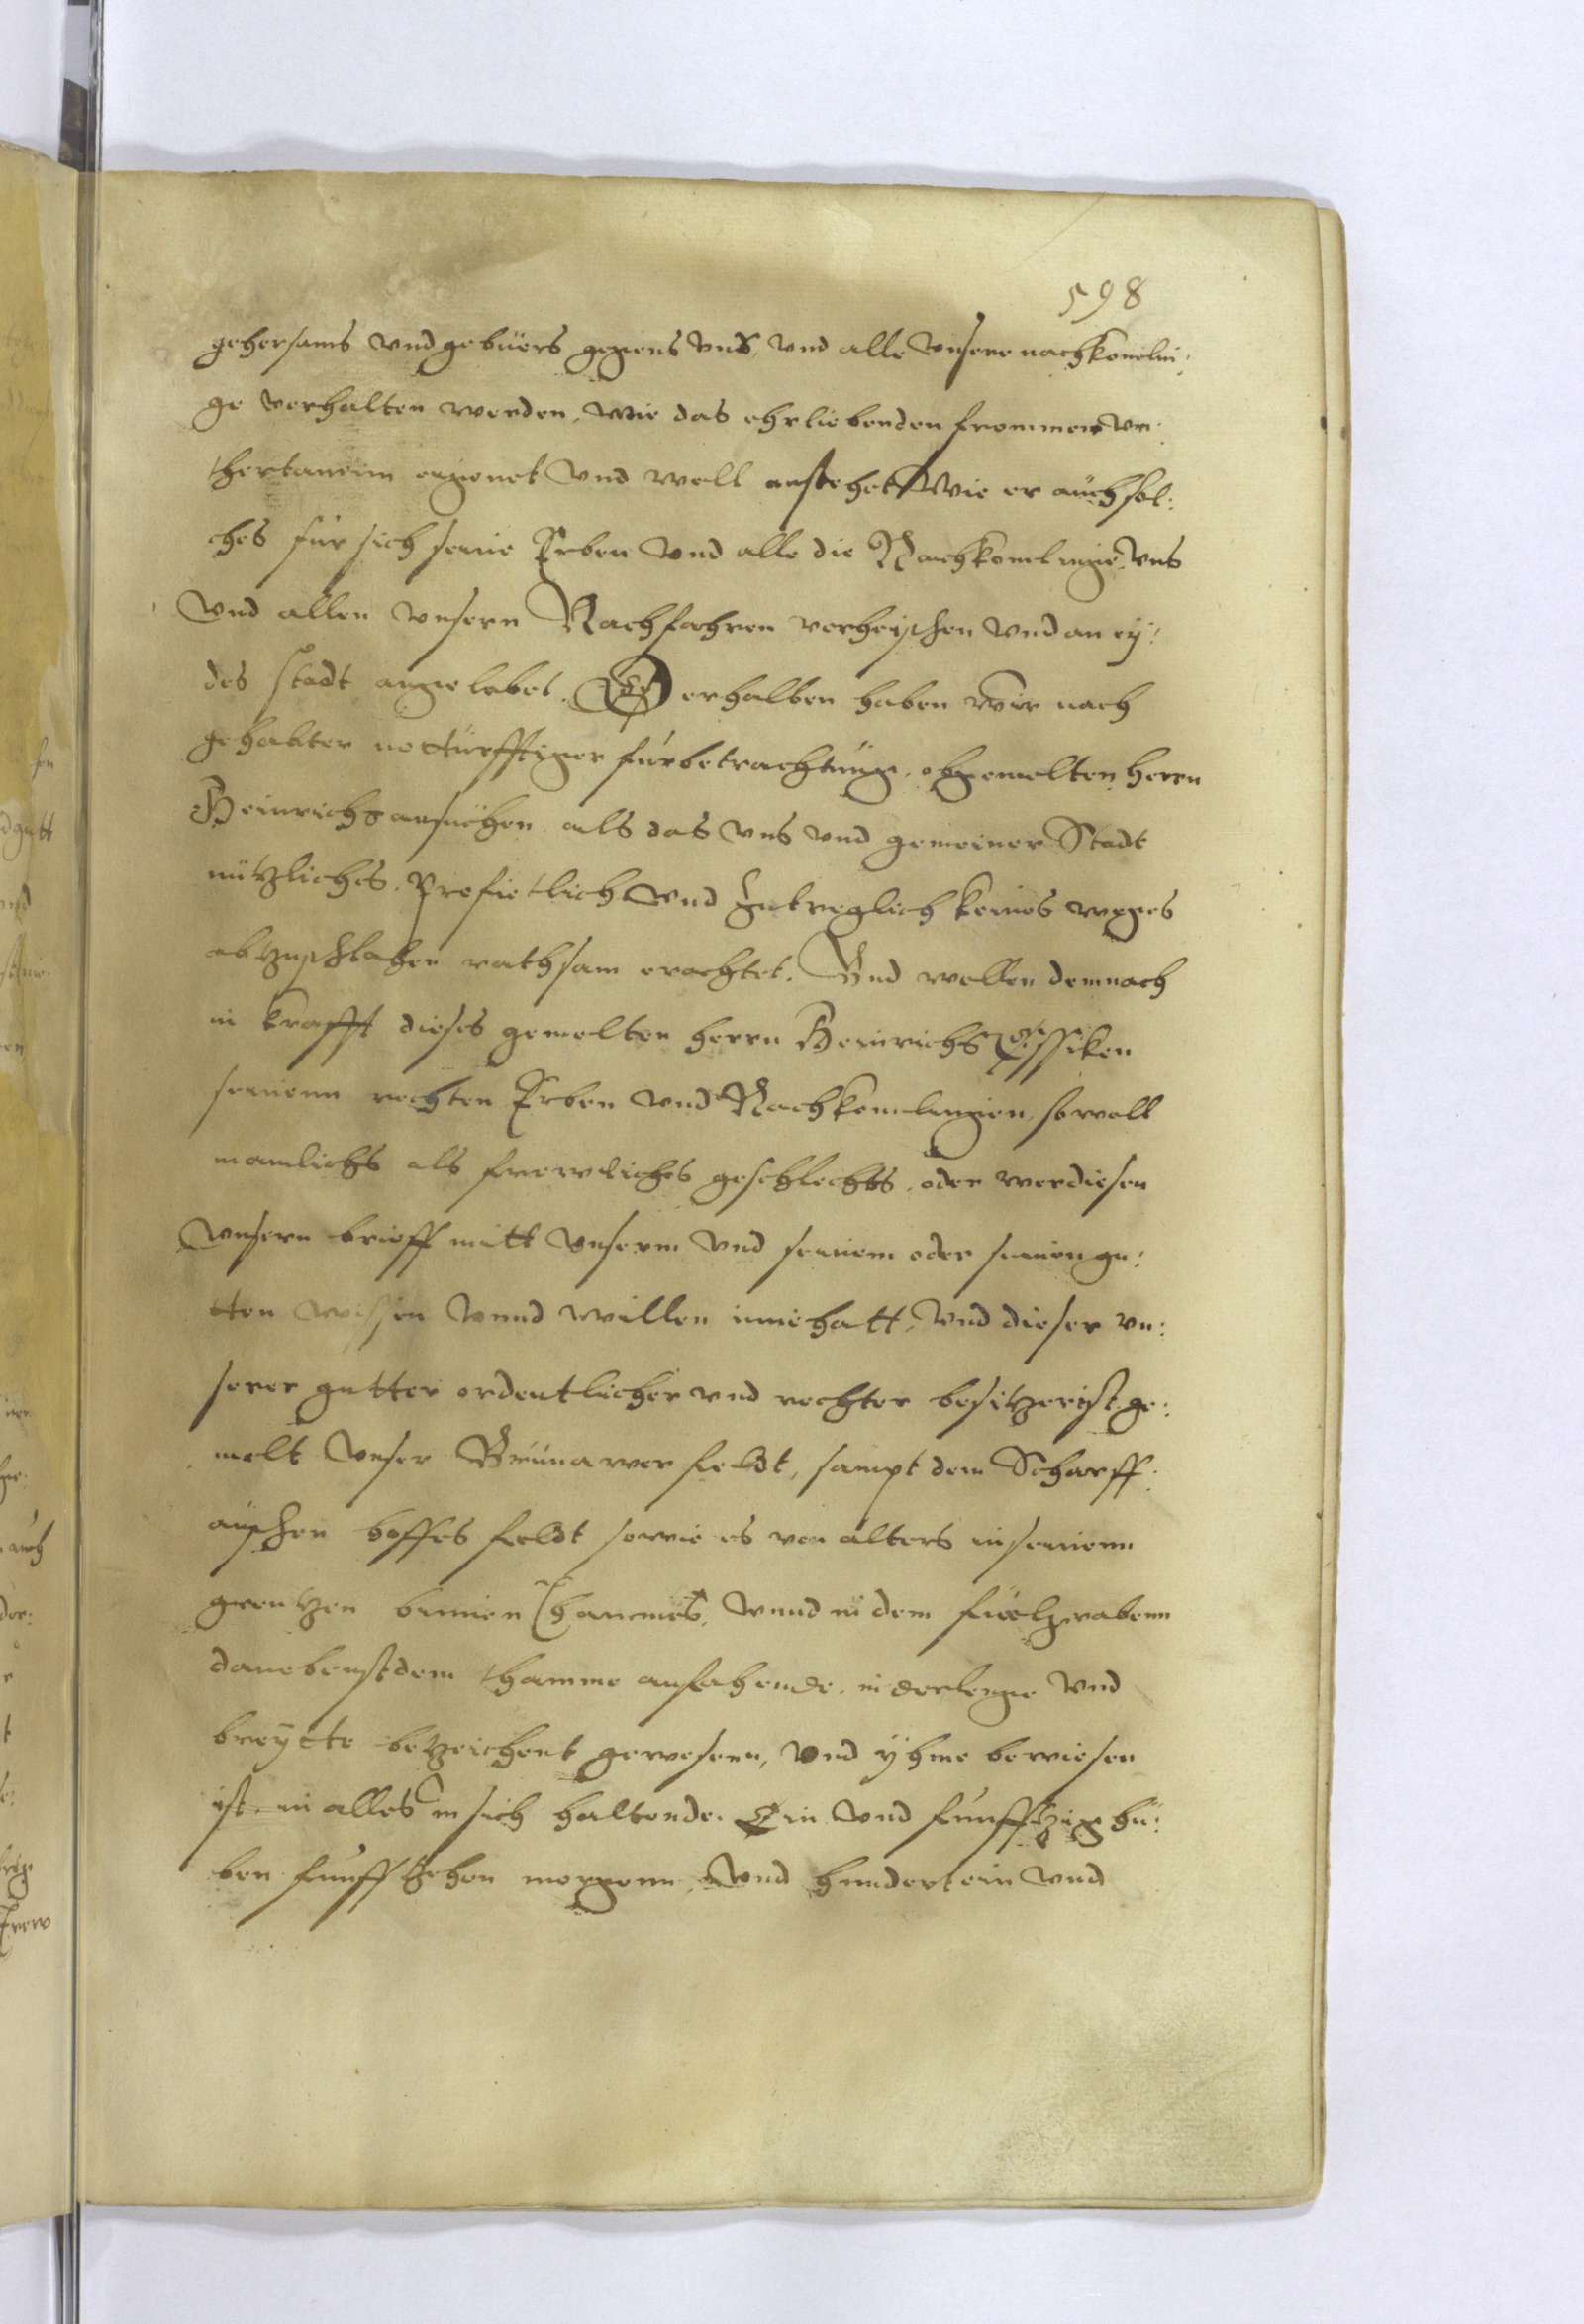 598
gehorsams vnd gebüers gegens vns, vnd alle vnsere nachkomlin:
ge verhalten werden, wie das ehrliebenden frommen vn:
thertanenn eigenet vnd woll anstehet Wie er auch sol:
ches für sich seine Erben vnd alle die Nachkomlinge vns
vnd allen vnsern Nachfahren verheischen vnd an ey:
des stadt angelobet. Derhalben haben wir nach
gehabter notturfftiger fürbetrachtung, obgemelten herrn
Heinrichs ansuchen als das vns vnd gemeiner Stadt
nützliches, Profietlich vnd Zutreglich keines weges
abzuschlahen rathsam erachtet. Vnd wollen demnach
in krafft dieses gemelten herrn Heinrichs
seinenn rechten Erben vnd Nachkomlingen, so woll
manlichs als frewliches geschlechts, oder wer diesen
vnsern brieff mitt vnserm vnd seinem oder seinen gu:
tten wissen vnnd willen inne hatt, vnd dieser vn:
serer gutter ordentlicher vnd rechter besitzer ist ge:
melt vnser Grünawer feldt, sampt dem Scharff:
auschen hoffes feldt so wie es von alters in seinenn
grentzen binnen Thammes, vnnd in dem
danebenst dem thamme anfahende, in der lenge vnd
breytte betzeichent gewesenn, vnd yhme bewiesen
ist, in alles in sich haltende. Ein vnd funfftzig hu:
ben funfftzehen morgenn, vnd hundert ein vnd